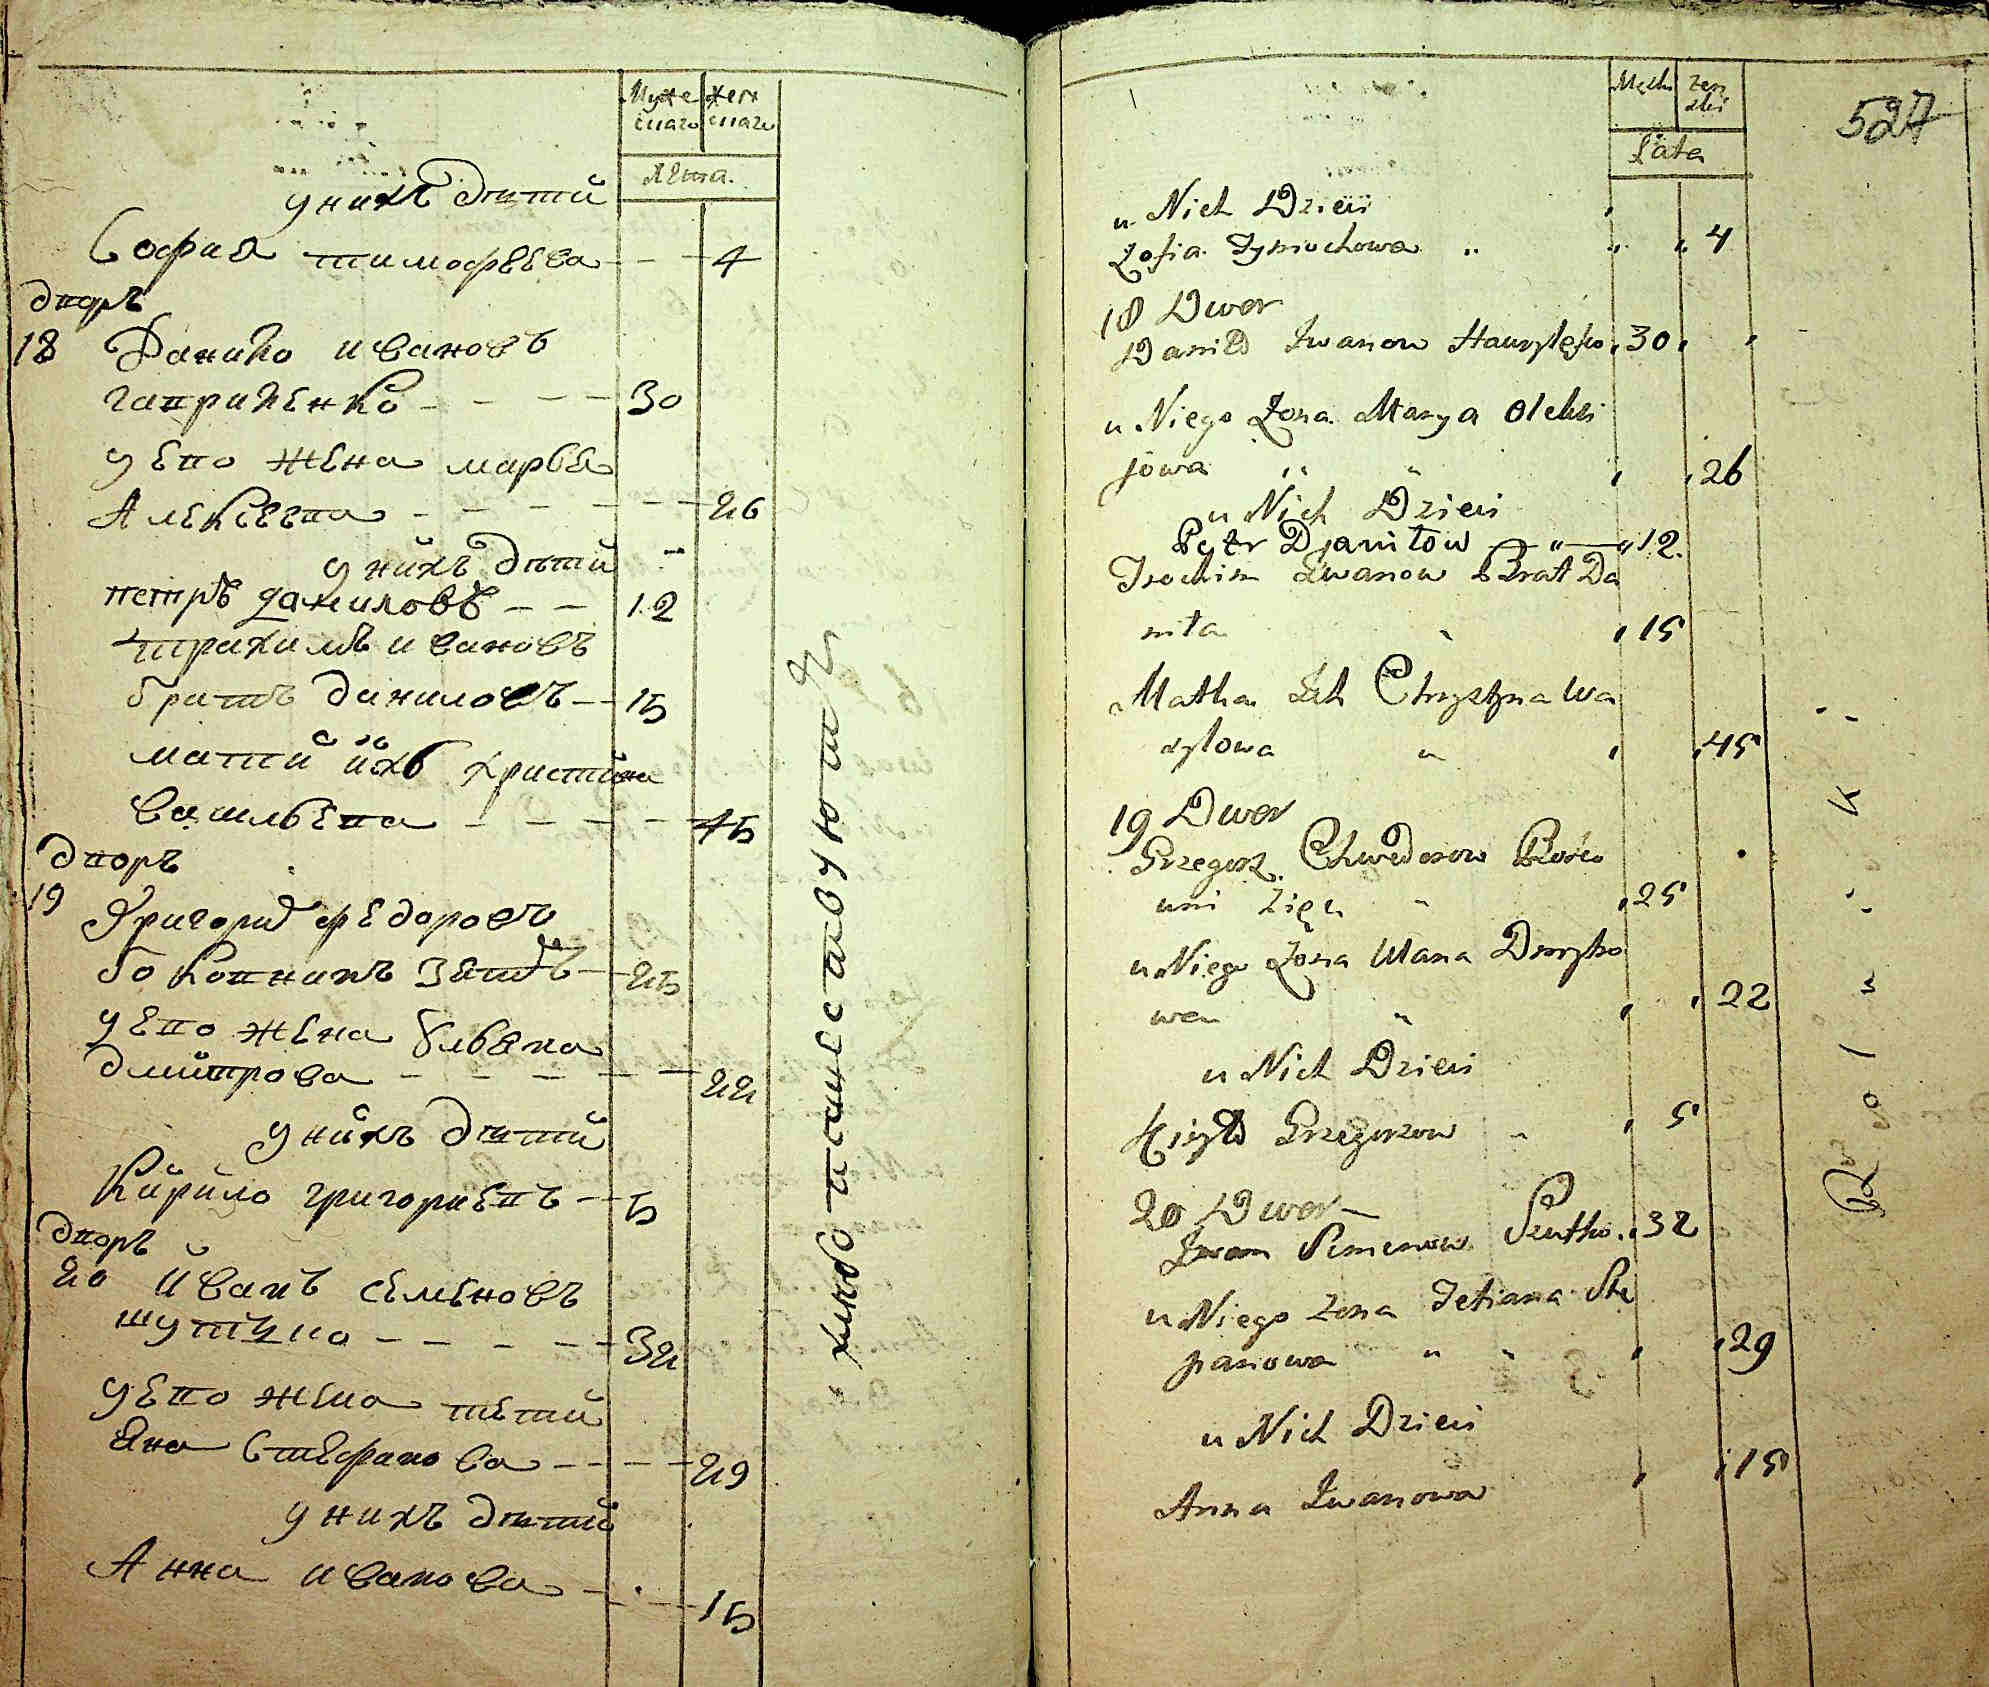 Муже скаго
жен скаго
Лѣта.
у нихъ дѣтий
София тимофѣева - - - 4
дворъ
18 Данило ивановъ
гавриленко - - - - 30
у его жена марья
Алексеева - - - - - - - 26
у нихъ дѣтий
петръ даниловъ - - 12
трахимъ ивановъ
братъ даниловъ - - 15
матий ихъ христина
васильева - - - - - 45
дворъ
19 Григорий федоровъ
зять - - 25
у его жена Ульяна
дмитрова - - - - - - 22
у нихъ дѣтий
Кирило григориевъ - - 5
дворъ
20 иванъ семеновъ
шутько - - - - - 32
у его жена тети
яна Стефанова - - - - 29
у нихъ дѣтий
Анна иванова - - - - 15
хлебопашествуютъ
527
Męzki
żen ski
Lata
u Nich Dzieci
Zofia Tymochowa " " " 4
18 Dwor
Daniło Iwanow Hawrylenko " 30 " "
u Niego Żona Marya Oleksi
jowa " " " " 26
u Nich Dzieci
Petr Daniłow — " — " 12.
Trochim Iwanow Brat Da
niła " " 15
Matka Ich Chrystyna Wa
sylowa " " " 45
19 Dwor
Grzegorz Chwedorow
Zięć " " 25
u Niego Żona Ulana Dmytro
wa " " " 22
u Nich Dzieci
Kiryło Grzegorzow " " 5
20 Dwor —
Iwan Semenow Szutko " 32
u Niego Zona Tetiana Ste
panowa " " " " 29
u Nich Dzieci
Anna Iwanowa " " 15